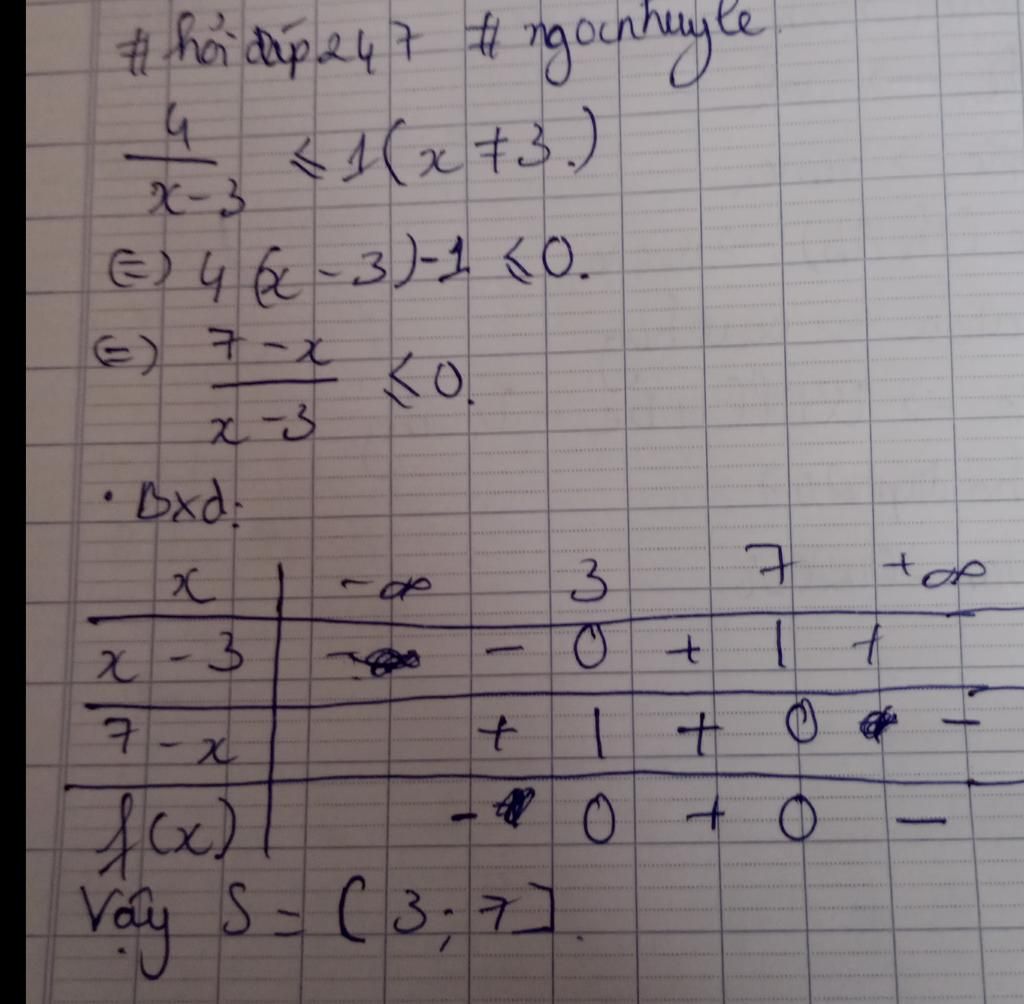 # hỏi đáp 247 # ngocnhuyle
4/(x-3) ⩽ 1 (x ≠ 3.)
(=) 4 (x - 3) - 1 ⩽ 0.
(=) (7 - x)/(x - 3) ⩽ 0.
• Bxd:
x | -∞ 3 7 +∞
x - 3 | - 0 + | +
7 - x | + | + 0 -
f(x) | - 0 + 0 -
Vậy S = (3; 7].